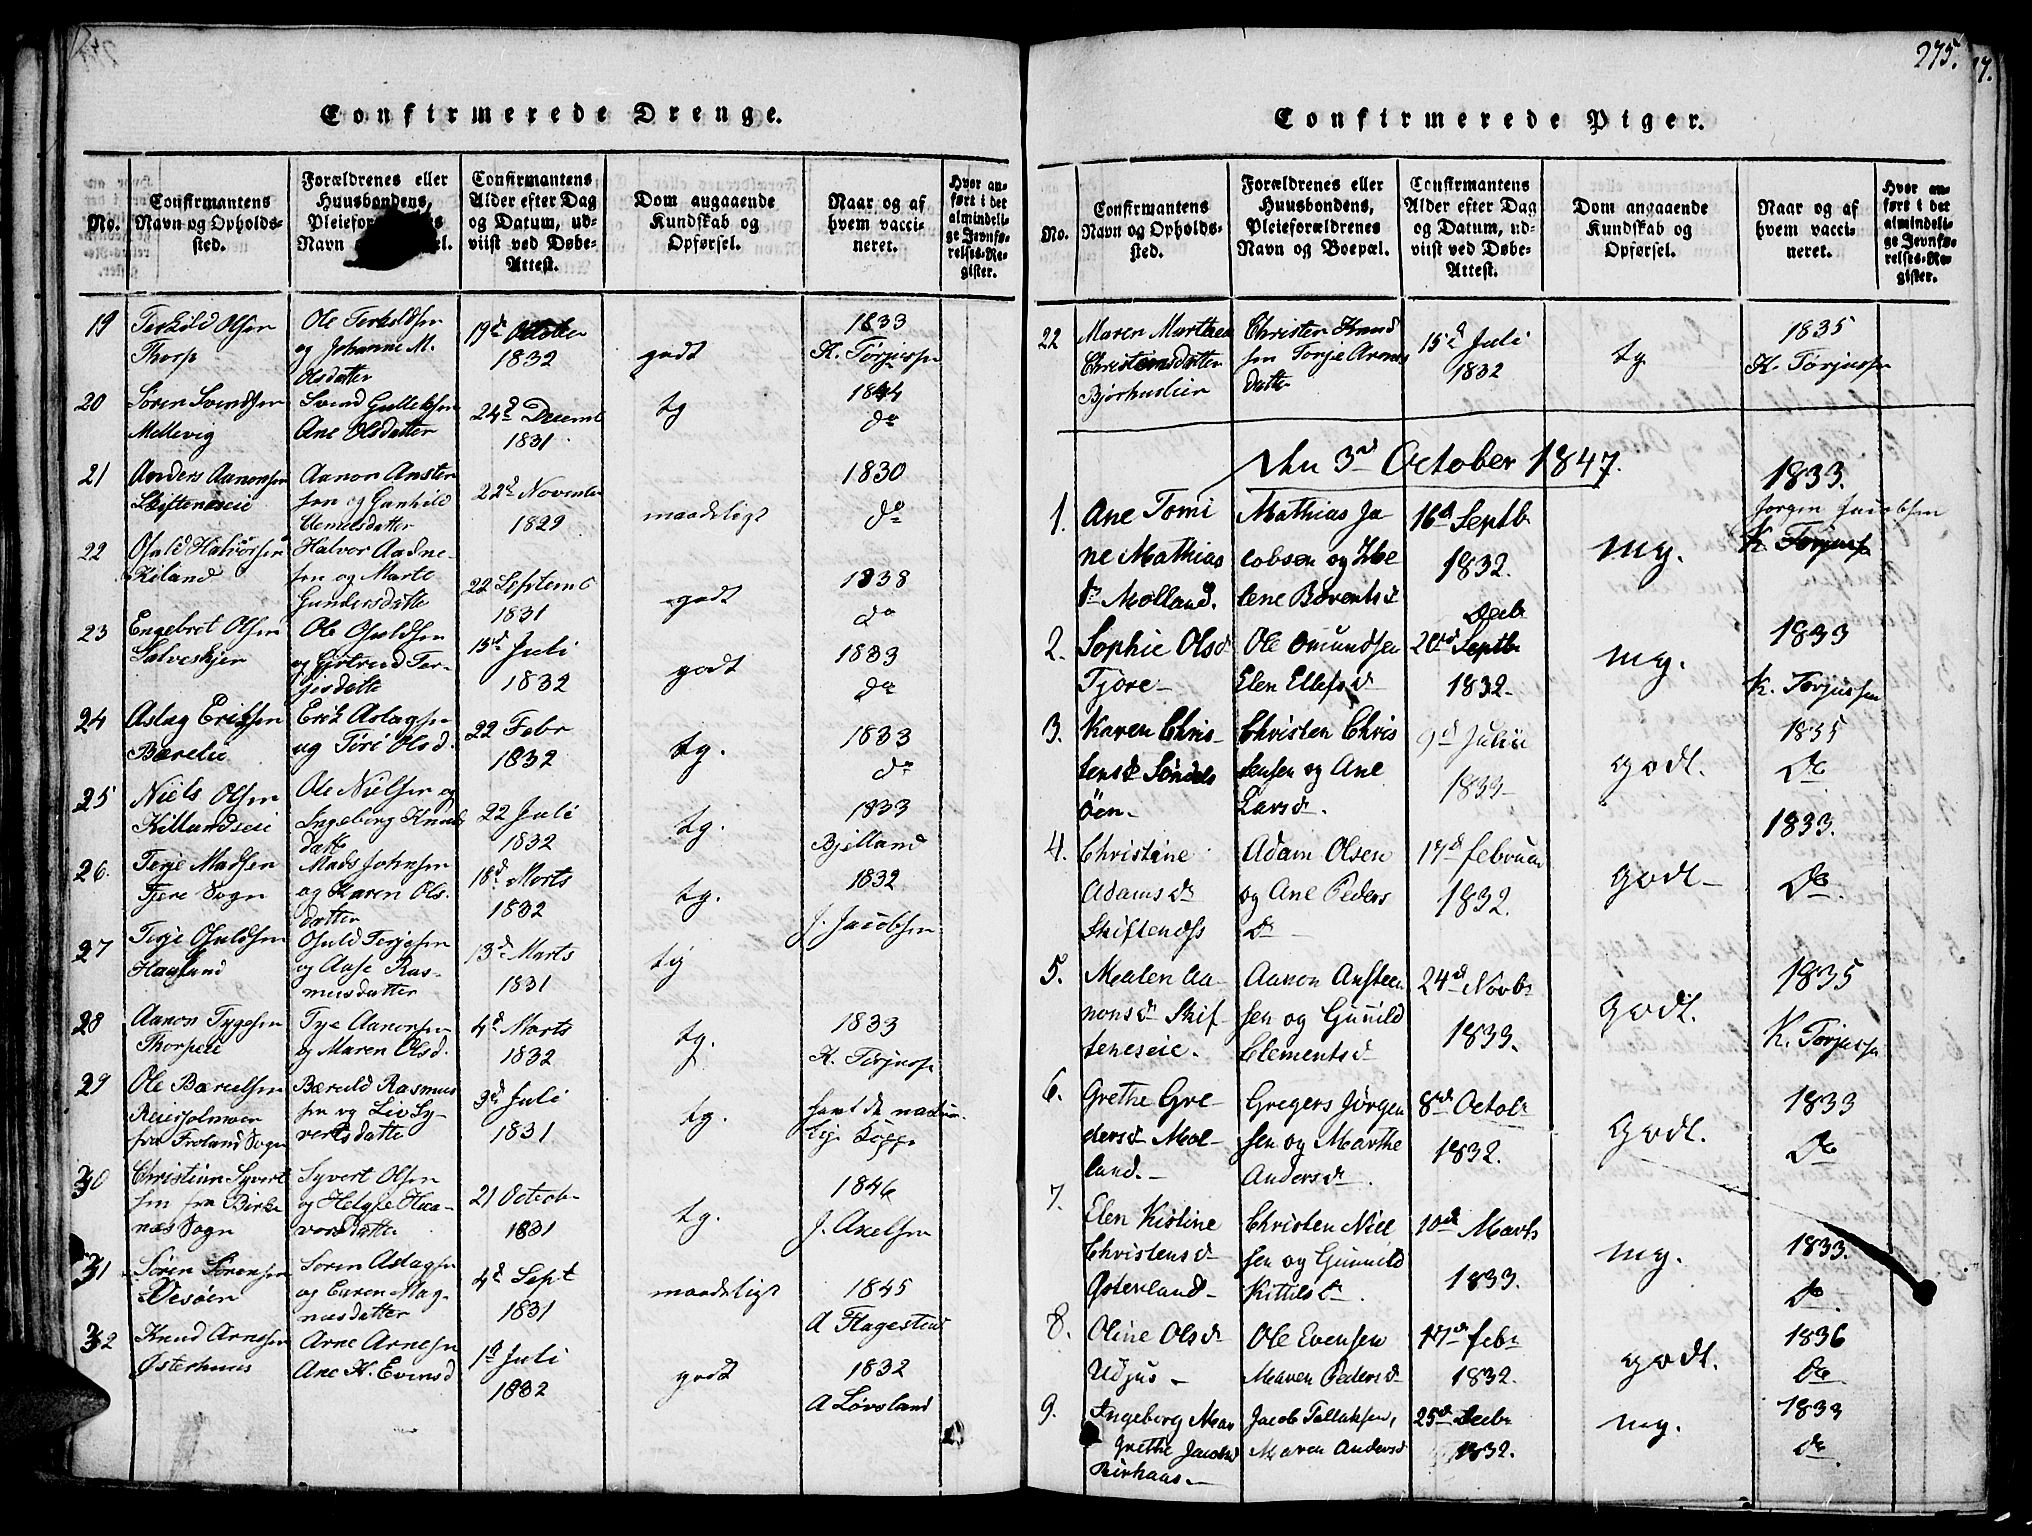 Confirmerede Drenge.
No.
Confirmantens
Navn og Opholds-
sted.
Forældrenes eller
Huusbondens,
Navn
Confirmantens
Alder efter Dag
og Datum, ud-
viist ved Døbe-
Attest.
Dom angaaende
Kundskab og
Opførsel.
Naar og af
hvem vacci-
neret.
Hvor an-
ført i det
almindeli-
ge Jevnfø-
relses-Re-
gister.
19
Terkild Olsen
Thorp
Ole Terkildsen
og Johanne M.
Olsdatter
19d October
1832
godt
1833
K. Torjussen
20
Søren Svendsen
Mellevig
Svend Gulleksen
Ane Olsdatter
24d Decemb
1831.
tg
1844
do
21
Anders Aanonsen
Skiftenæseie
Aanon Ansten
sen og Gunhild
Clemetsdatter
22d November
1829
maadeligt
1830
do
22
Osuld Halvorsen
Kiland
Halvor Aadne-
sen og Marte
Gundersdatte
22 Septemb
1831
godt
1838
do
23
Engebret Olsen
Salveskjer
Ole Osuldsen
og Gjertrud Ter-
jisdatte
15d Juli
1832
godt
1833
do
24
Aslag Eriksen
Bærelie
Erik Aslagsen
og Tori Olsd.
22 Febr
1832
tg.
1833
do
25
Niels Olsen
Killandseie
Ole Nielsen og
Ingeborg Knuds
datte
22 Juli
1832
tg.
1833
Bjelland
26.
Terje Madsen
Fjere Sogn
Mads Johnsen
og Karen Ols-
datter
18d Marts
1832
tg.
1832
J. Jacobsen
27
Terje Osuldsen
Haugland
Osuld Terjesen
og Aase Ras-
musdatter
13d Marts
1831
tg
28
Aanon Tygesen
Thorpeie
Tye Aanonsen
og Maren Olsd.
4d Marts
1832
tg.
1833
K. Torjussen
29
Ole Bærulsen
fra Froland Sogn
Bæruld Rasmus
sen og Liv Sy-
vertsdatte
3d Juli
1831
tg.
havt de natur-
lige Kopper
30
Christian Syvert
sen fra Birke
næs Sogn
Syvert Olsen
og Helge Hal-
vorsdatte
21 Octob-
1831
tg.
1846
J. Axelsen
31
Søren Sørensen
Vesøen
Søren Aslagsen
og Karen Mag-
nusdatter
4d Sept
1831
maadeligt
1845
A Flagestad
32
Knud Arnesen
Østerhuus
Arne Arnesen
Ane K. Evensd
1d Juli
1832
godt
1832
A Løvsland
275.
Confirmerede Piger.
No.
Confirmantens
Navn og Opholds-
sted.
Forældrenes eller
Huusbondens,
Pleieforældrenes
Navn og Boepæl.
Confirmantens
Alder efter Dag
og Datum, ud-
viist ved Døbe-
Attest.
Dom angaaende
Kundskab og
Opførsel.
Naar og af
hvem vacci-
neret.
Hvor an-
ført i det
almindeli-
ge Jevnfø-
relses-Re-
gister.
22
Maren Marthea
Christensdatter
Bjorhusleir
Christen Knud
sen Tonje Arons
datte
15d Juli
1832
tg
1835
K. Torjussen
Den 3d October 1847.
1.
Ane Tomi
ne Mathias
Dr Molland.
Mathias Ja
cobsen og He
lene Berentsd
16d Septb
1832.
mg.
1833.
Jørgen Jacobsen
K Torjussen
2.
Sophie Olsd
Tjore-
Ole Omundsen
Elen Ellefsd
Decb
20d Septb
1832.
mg.
1833
K. Torjussen
3.
Karen Chris-
tensd Søndels
öen.
Christen Chris
tensen og Ane
Larsd.
9d Julii
1833
godt.
1835
Do
4.
Christine
Adamsd
Skiftenæs
Adam Olsen
og Ane Peders
D
17d februar
1832.
godt-
1833.
Do.
5.
Malen Aa-
nonsd Skif-
teneseie.
Aanon Ansteen
sen og Gunild
Clementsd
24d Novbr
1833.
godt.
1835
K. Torjussen
6.
Grethe Gre-
gersd Mol-
land.-
Gregers Jørgen
sen og Marthe
Andersd.
8d Octob
1832.
godt.
1833
Do
7.
Elen Kistine
Christensd
Østerland-
Christen Niel
sen og Gunnild
Kittilsd.
10d Marts
1833.
mg.
1833.
Do.
8.
Oline Olsd
Udjus-
Ole Evensen
Maren Pedersd
17d feb
1832.
godt.
1836
Do
9.
Ingeborg Mar
Grethe Jacobsd
Birhaas-
Jacob Tellaksen,
Maren Andersd
25d Decb
1832.
mg.
1833
Do